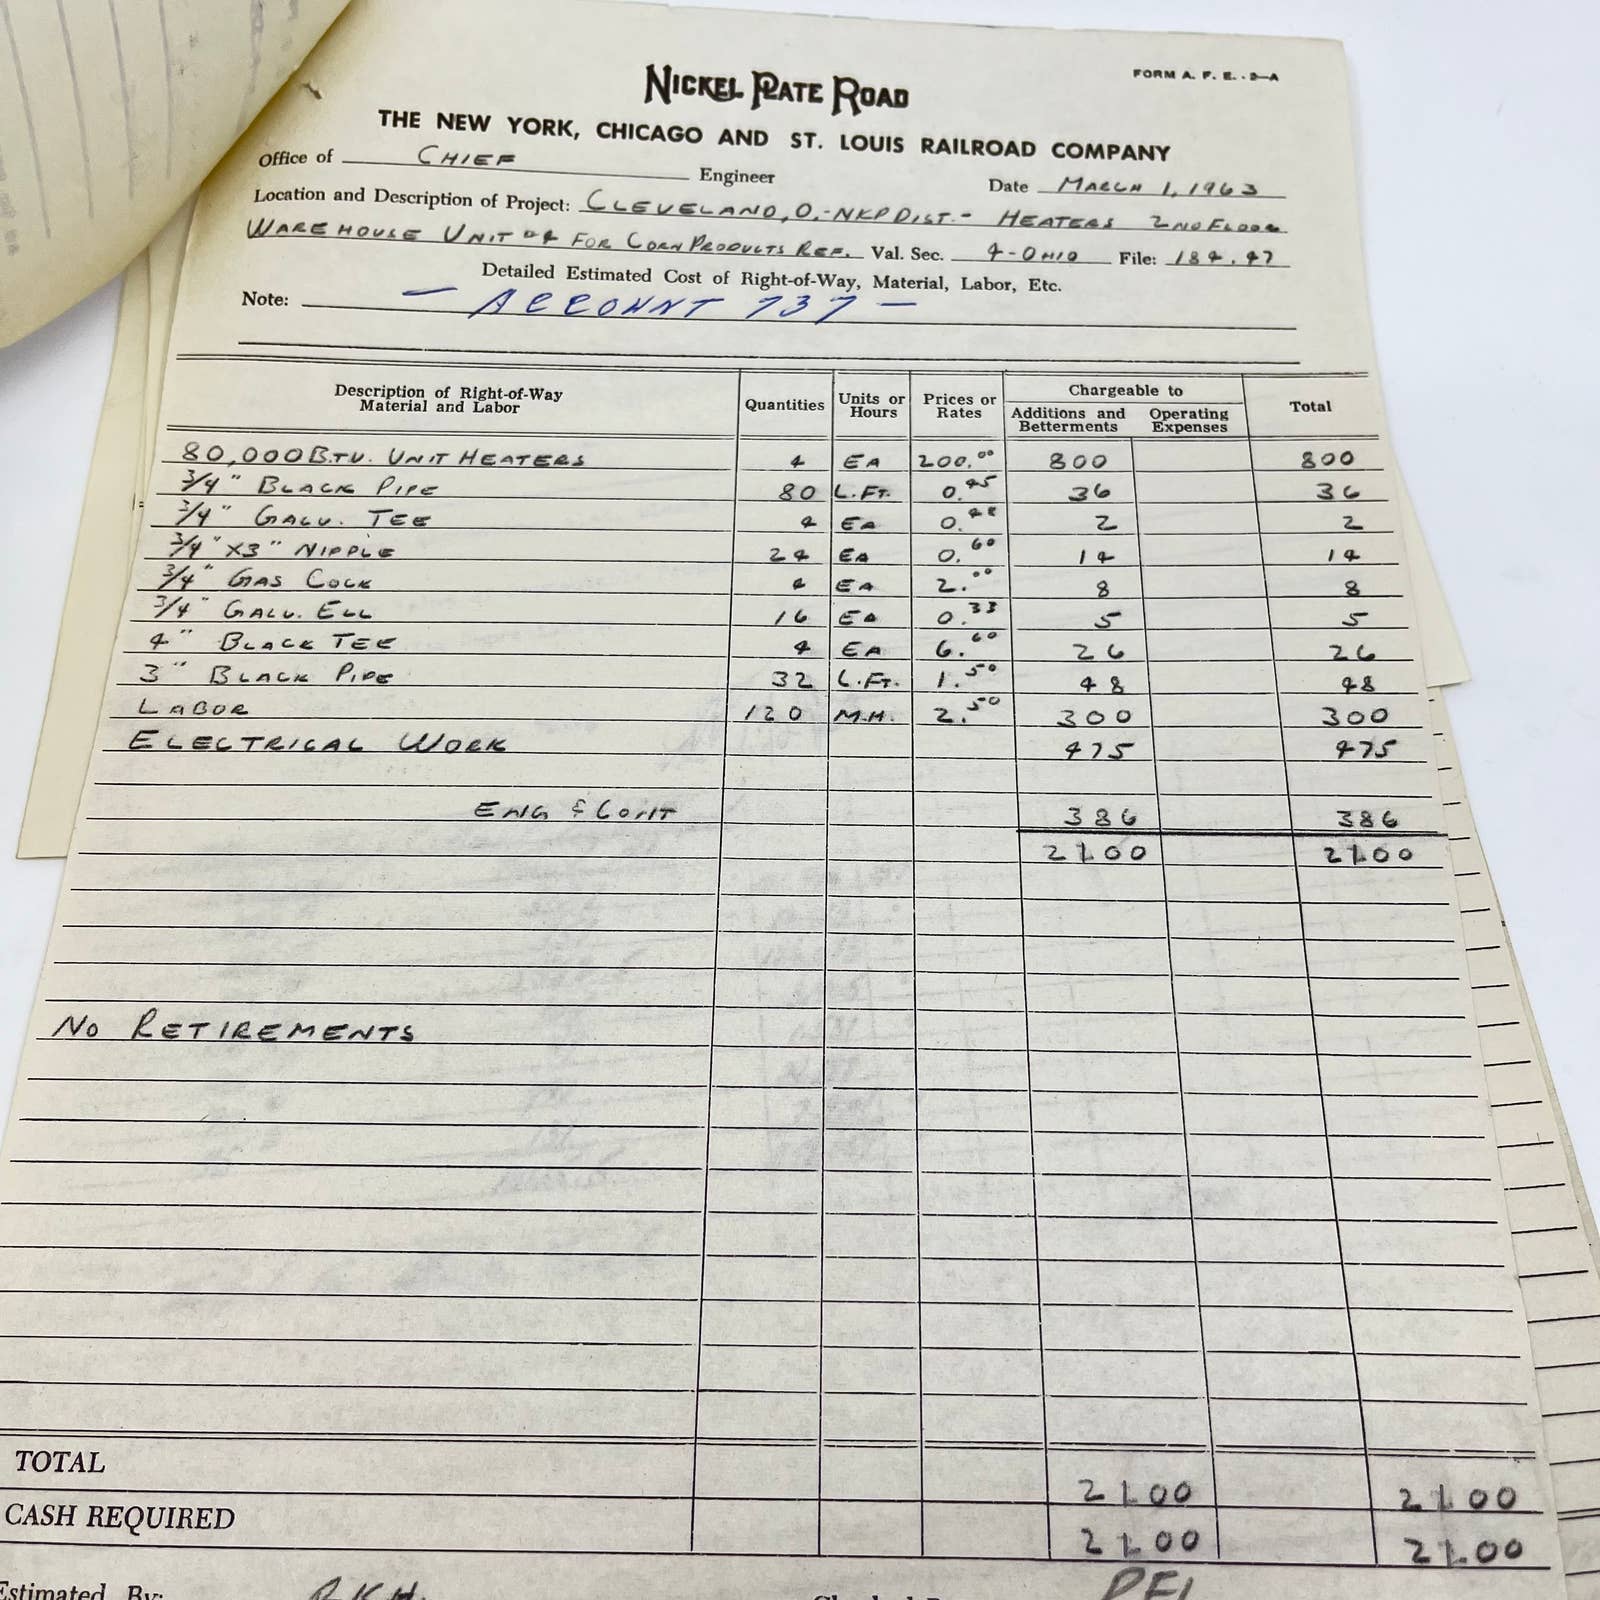 NICKEL PLATE ROAD
FORM A. F. E. - 2—A
THE NEW YORK, CHICAGO AND ST. LOUIS RAILROAD COMPANY
Office of CHIEF Engineer Date MARCH 1, 1963
Location and Description of Project: CLEVELAND, O. - NKP DIST. - HEATERS 2ND FLOOR
WAREHOUSE UNIT #4 FOR CORN PRODUCTS REF. Val. Sec. 4-OHIO File: 184.47
Detailed Estimated Cost of Right-of-Way, Material, Labor, Etc.
Note: — ACCOUNT 737 —
Description of Right-of-Way Material and Labor Quantities Units or Hours Prices or Rates Chargeable to Additions and Betterments Operating Expenses Total
80,000 B.T.U. UNIT HEATERS 4 EA 200.00 800 800
3/4" BLACK PIPE 80 L.FT. 0.45 36 36
3/4" GALV. TEE 4 EA 0.48 2 2
3/4" X 3" NIPPLE 24 EA 0.60 14 14
3/4" GAS COCK 4 EA 2.00 8 8
3/4" GALV. ELL 16 EA 0.33 5 5
4" BLACK TEE 4 EA 6.60 26 26
3" BLACK PIPE 32 L.FT. 1.50 48 48
LABOR 120 M.H. 2.50 300 300
ELECTRICAL WORK 475 475
ENG & CONT 386 386
2100 2100
NO RETIREMENTS
TOTAL 2100 2100
CASH REQUIRED 2100 2100
Estimated By: RKH.